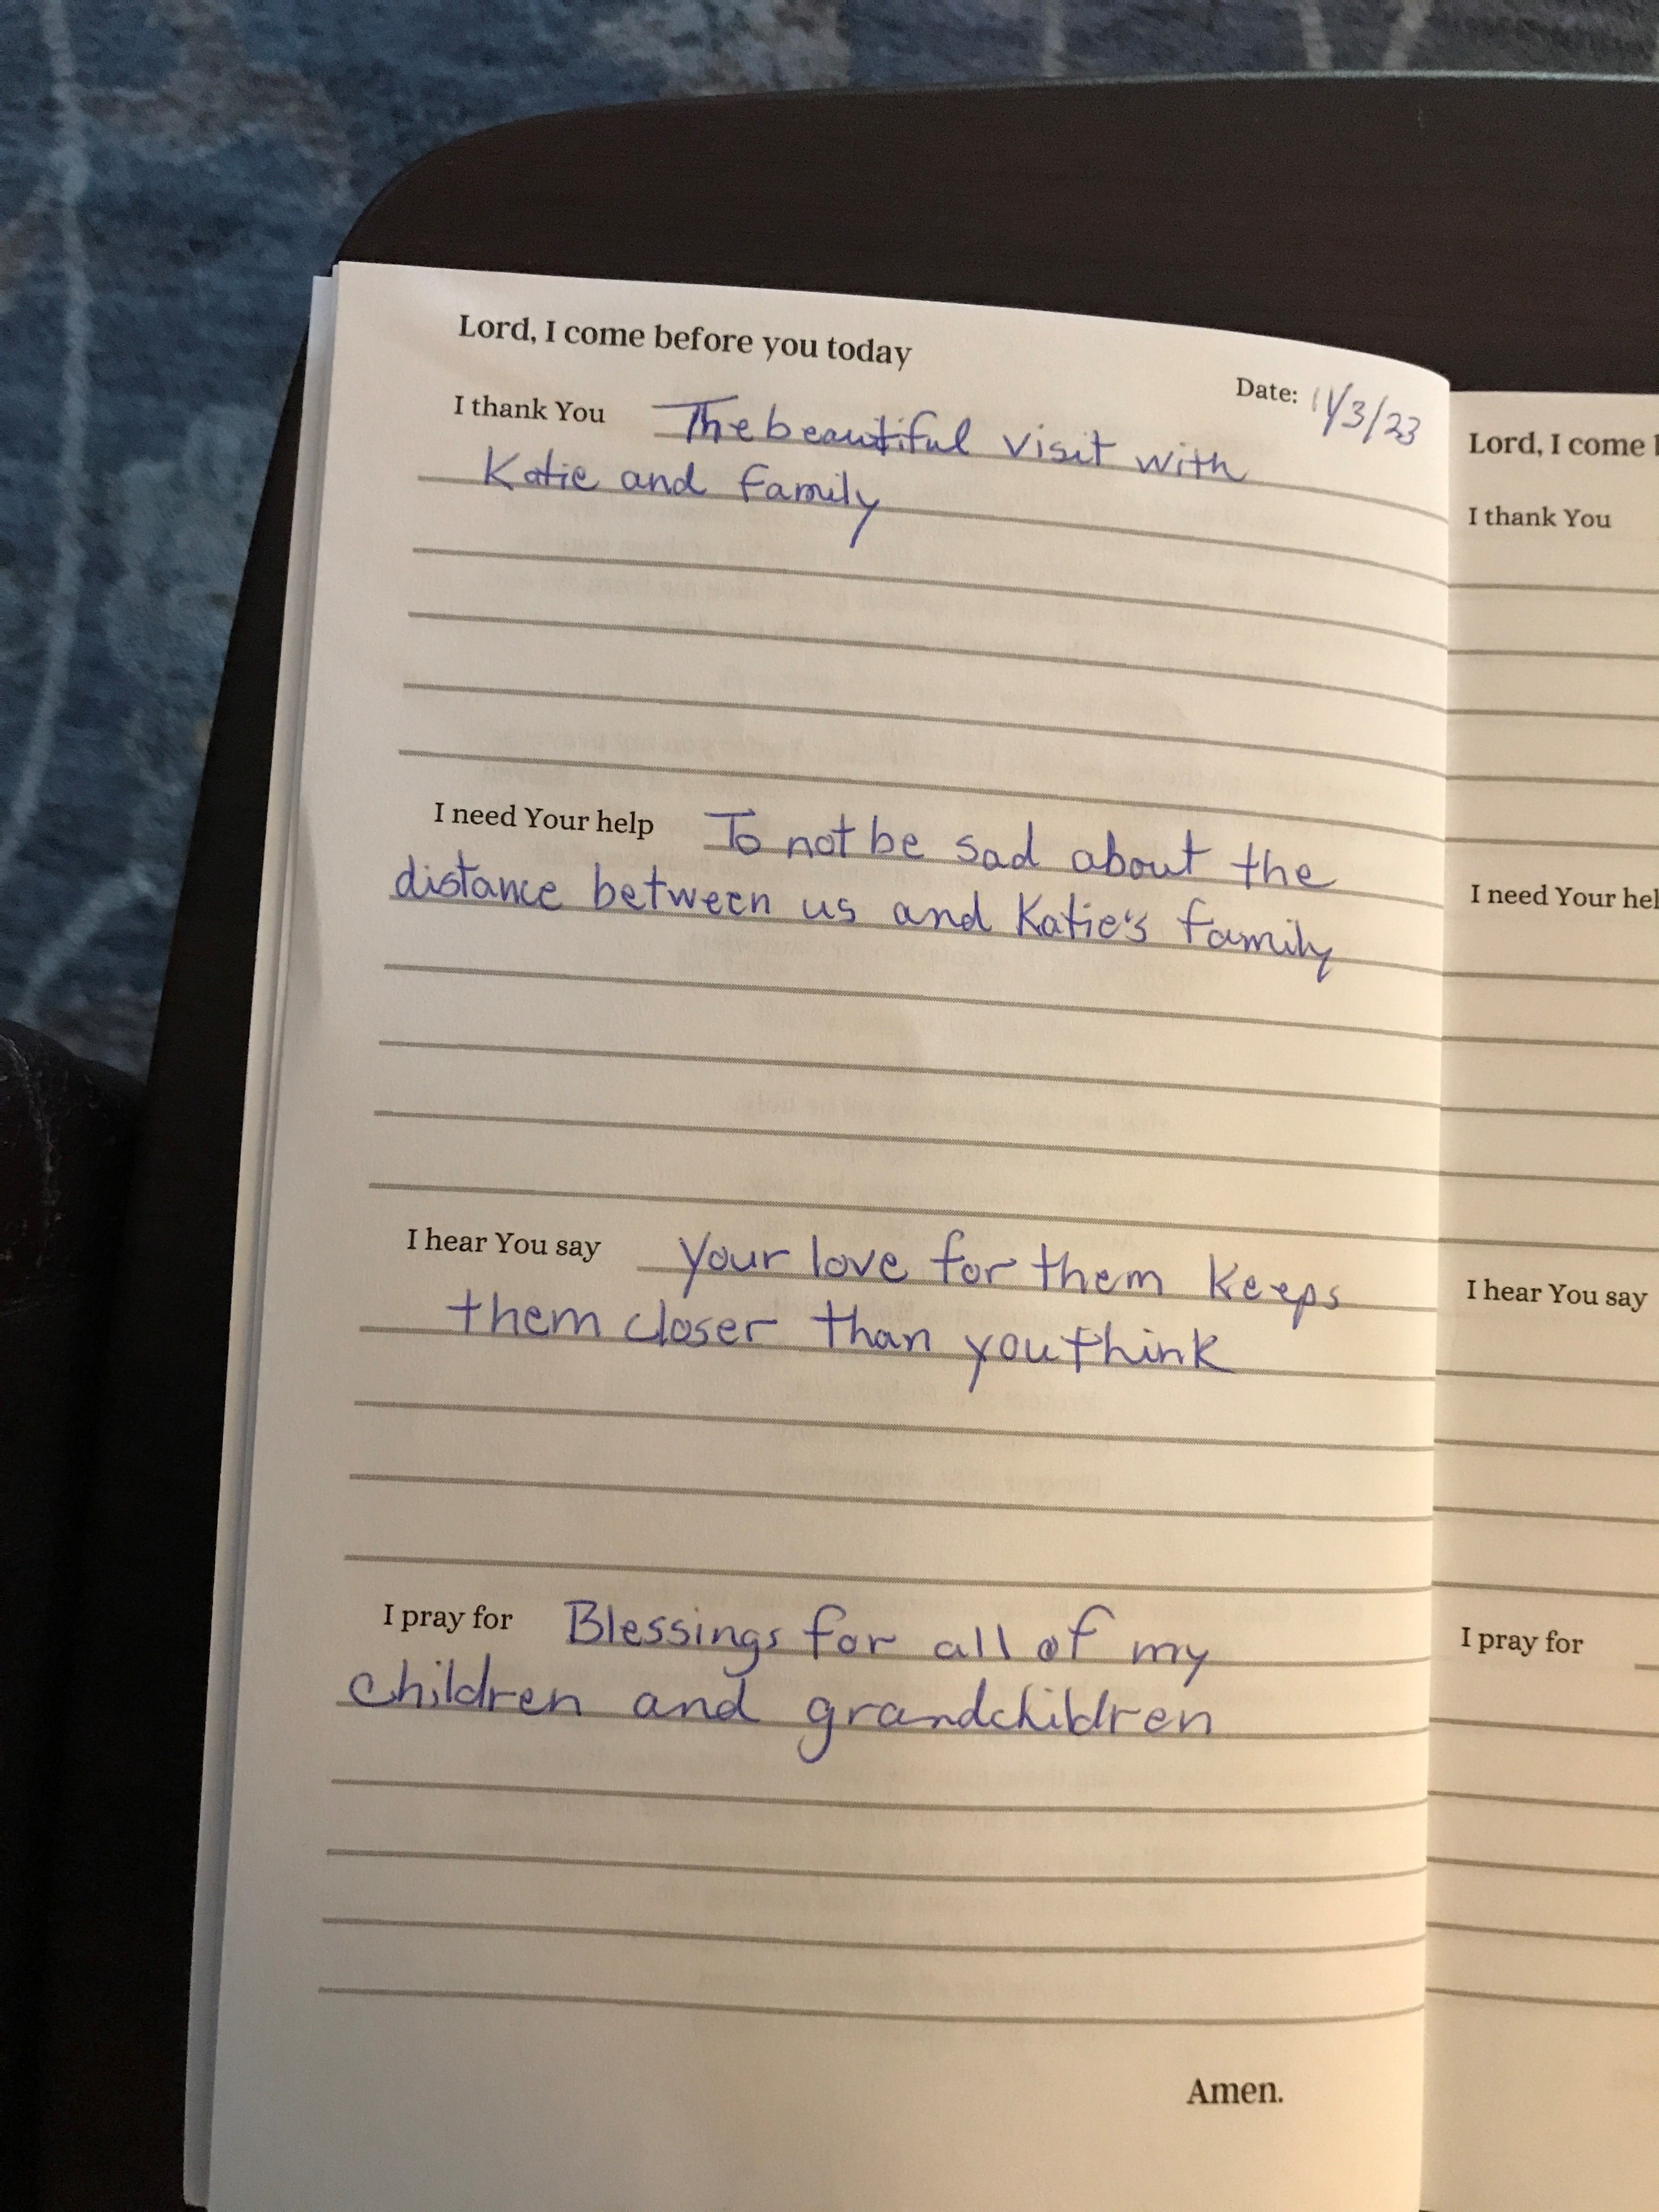 Lord, I come before you today
Date: 11/3/23
I thank You The beautiful visit with
Katie and family
I need Your help To not be sad about the
distance between us and Katie's family
I hear You say Your love for them keeps
them closer than you think
I pray for Blessings for all of my
children and grandchildren
Amen.
Lord, I come
I thank You
I need Your hel
I hear You say
I pray for